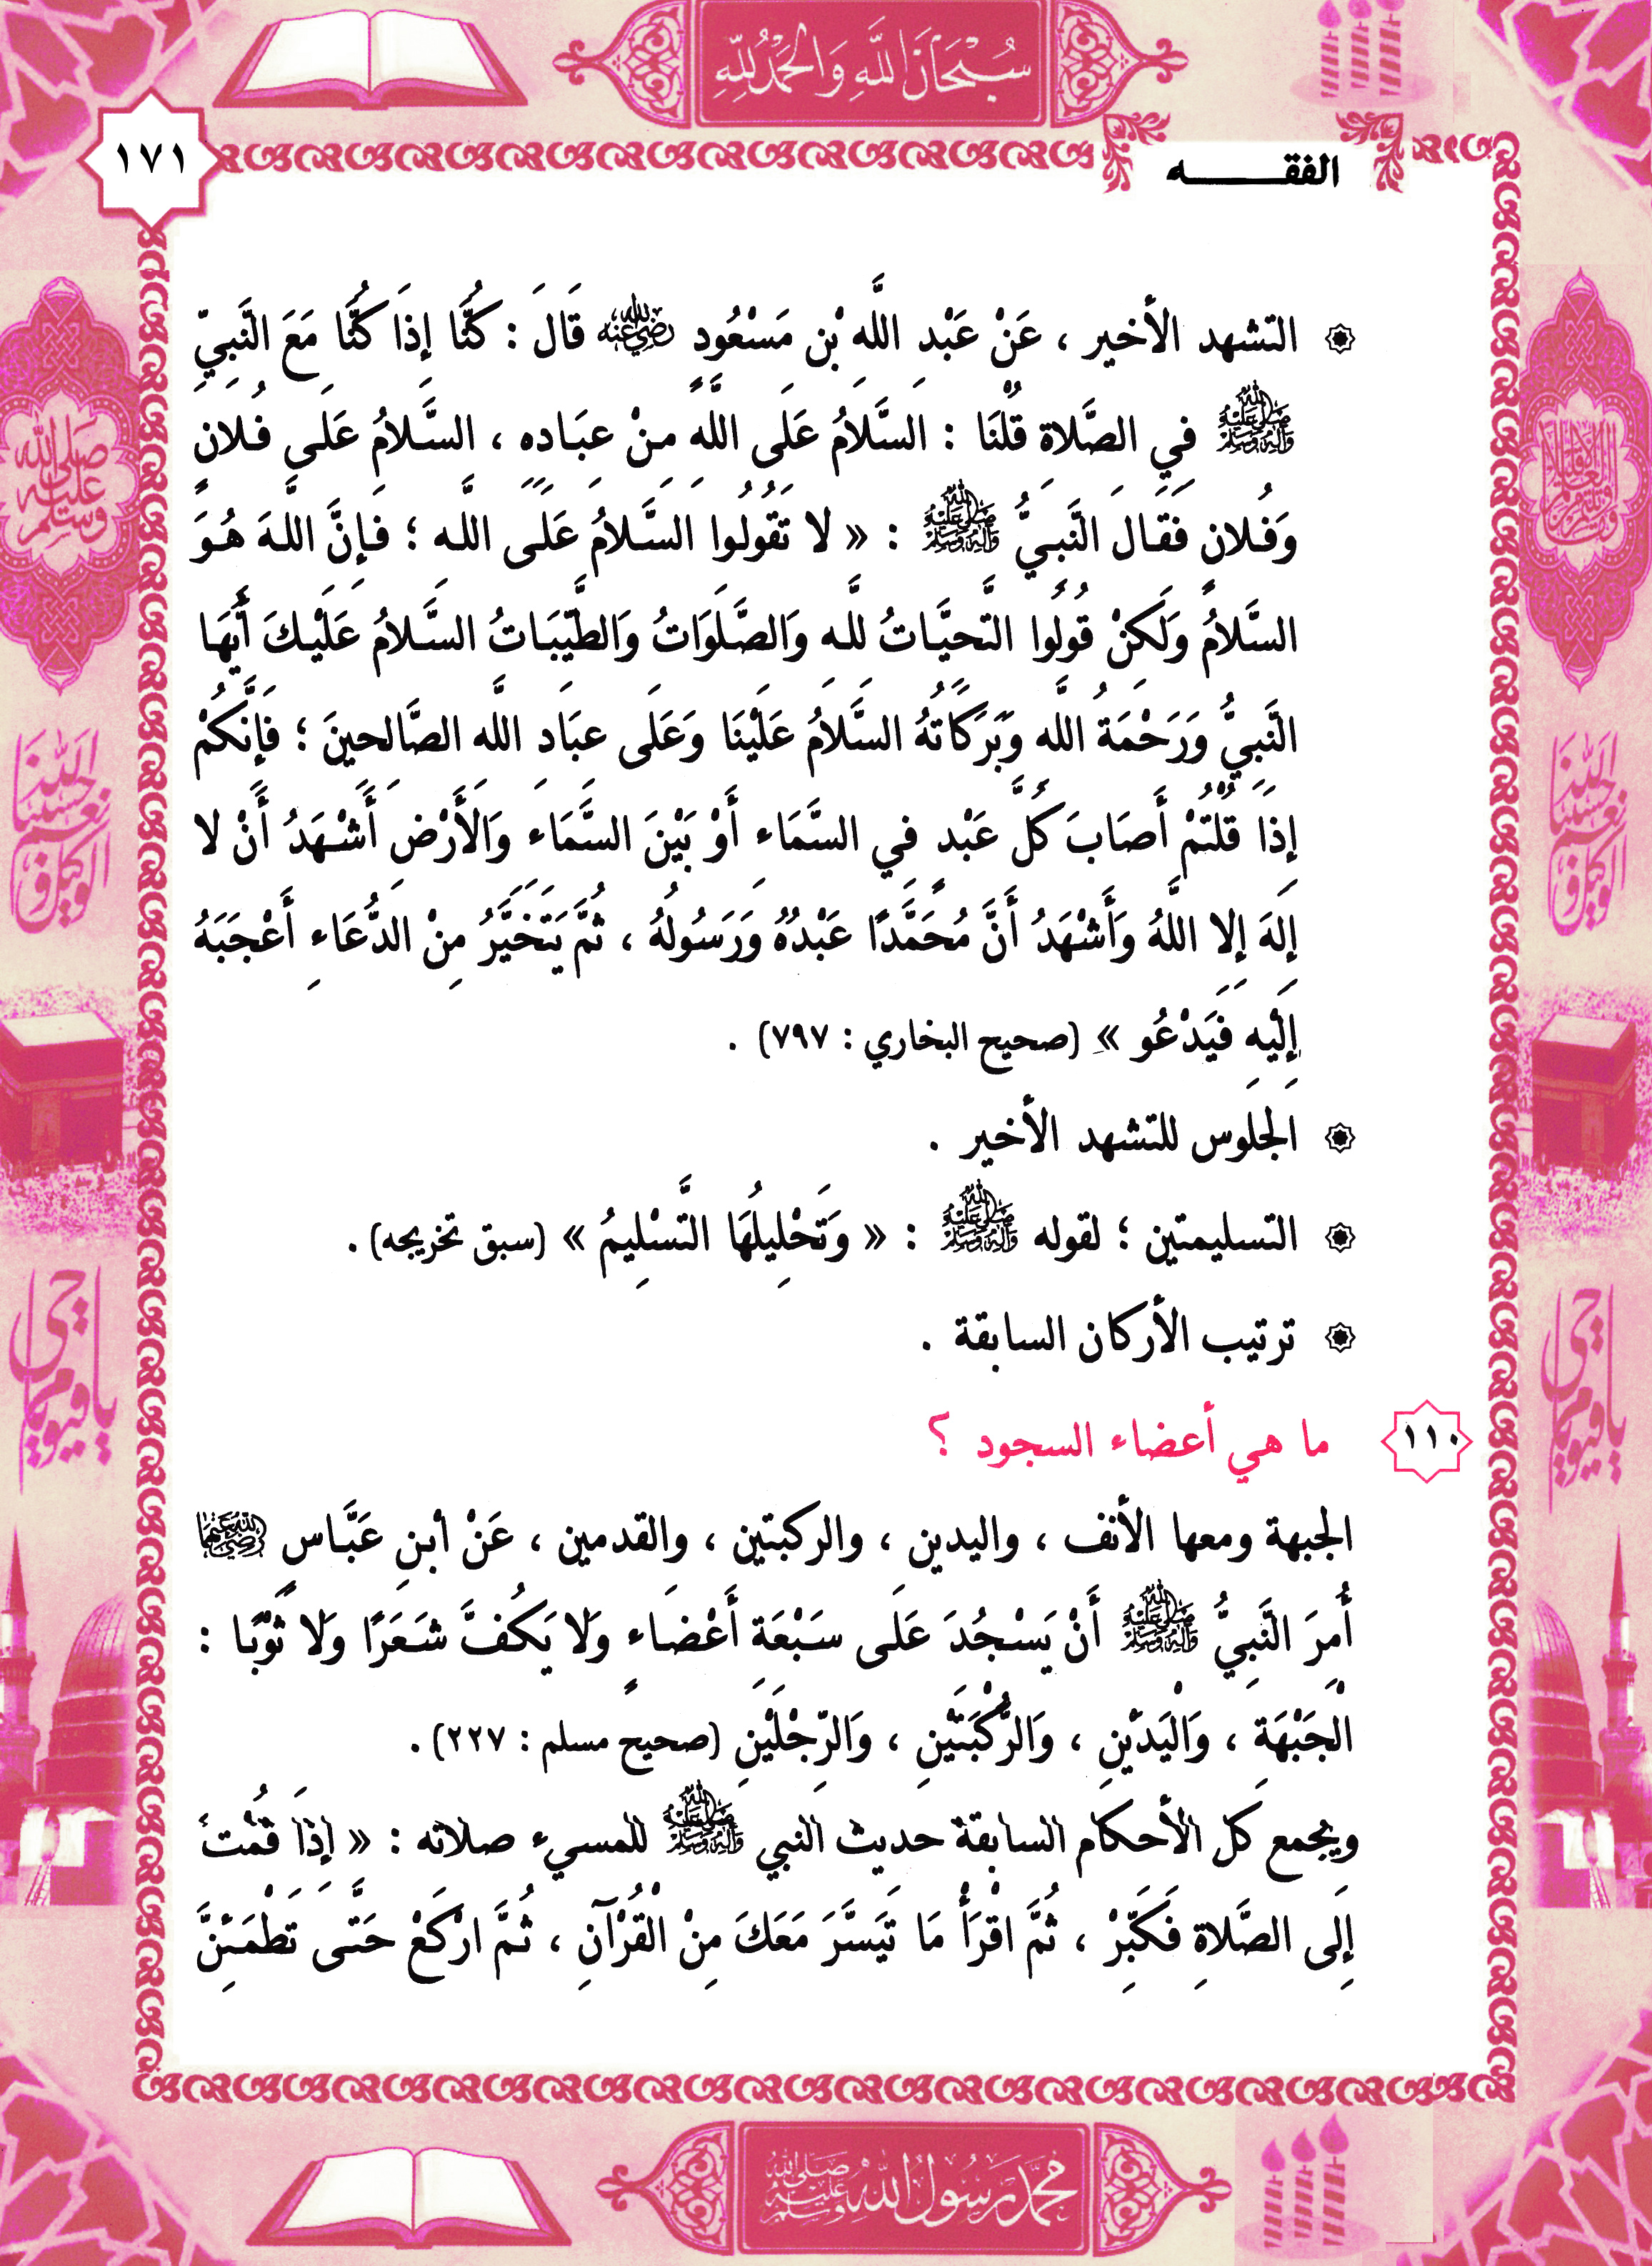 سُبْحَانَ اللَّهِ وَالْحَمْدُ لِلَّهِ
١٧١
الفقـــــه
التشهد الأخير ، عَنْ عَبْدِ اللَّهِ بْنِ مَسْعُودٍ رضي الله عنه قَالَ : كُنَّا إِذَا كُنَّا مَعَ النَّبِيِّ
ﷺ فِي الصَّلاةِ قُلْنَا : السَّلامُ عَلَى اللَّهِ مِنْ عِبَادِهِ ، السَّلامُ عَلَى فُلانٍ
وَفُلانٍ فَقَالَ النَّبِيُّ ﷺ : « لا تَقُولُوا السَّلامُ عَلَى اللَّهِ ؛ فَإِنَّ اللَّهَ هُوَ
السَّلامُ وَلَكِنْ قُولُوا التَّحِيَّاتُ لِلَّهِ وَالصَّلَوَاتُ وَالطَّيِّبَاتُ السَّلامُ عَلَيْكَ أَيُّهَا
النَّبِيُّ وَرَحْمَةُ اللَّهِ وَبَرَكَاتُهُ السَّلامُ عَلَيْنَا وَعَلَى عِبَادِ اللَّهِ الصَّالِحِينَ ؛ فَإِنَّكُمْ
إِذَا قُلْتُمْ أَصَابَ كُلَّ عَبْدٍ فِي السَّمَاءِ أَوْ بَيْنَ السَّمَاءِ وَالْأَرْضِ أَشْهَدُ أَنْ لا
إِلَهَ إِلا اللَّهُ وَأَشْهَدُ أَنَّ مُحَمَّدًا عَبْدُهُ وَرَسُولُهُ ، ثُمَّ يَتَخَيَّرُ مِنْ الدُّعَاءِ أَعْجَبَهُ
إِلَيْهِ فَيَدْعُو » (صحيح البخاري : ٧٩٧) .
الجلوس للتشهد الأخير .
التسليمتين ؛ لقوله ﷺ : « وَتَحْلِيلُهَا التَّسْلِيمُ » (سبق تخريجه) .
ترتيب الأركان السابقة .
١١٠ ما هي أعضاء السجود ؟
الجبهة ومعها الأنف ، واليدين ، والركبتين ، والقدمين ، عَنْ ابنِ عَبَّاسٍ رضي الله عنهما
أُمِرَ النَّبِيُّ ﷺ أَنْ يَسْجُدَ عَلَى سَبْعَةِ أَعْضَاءٍ وَلا يَكُفَّ شَعَرًا وَلا ثَوْبًا :
الْجَبْهَةِ ، وَالْيَدَيْنِ ، وَالرُّكْبَتَيْنِ ، وَالرِّجْلَيْنِ (صحيح مسلم : ٢٢٧) .
ويجمع كل الأحكام السابقة حديث النبي ﷺ للمسيء صلاته : « إِذَا قُمْتَ
إِلَى الصَّلاةِ فَكَبِّرْ ، ثُمَّ اقْرَأْ مَا تَيَسَّرَ مَعَكَ مِنْ الْقُرْآنِ ، ثُمَّ ارْكَعْ حَتَّى تَطْمَئِنَّ
صلى الله عليه وسلم
حسبنا الله ونعم الوكيل
حسبنا الله ونعم الوكيل
يا حي يا قيوم
يا حي يا قيوم
محمد رسول الله صلى الله عليه وسلم